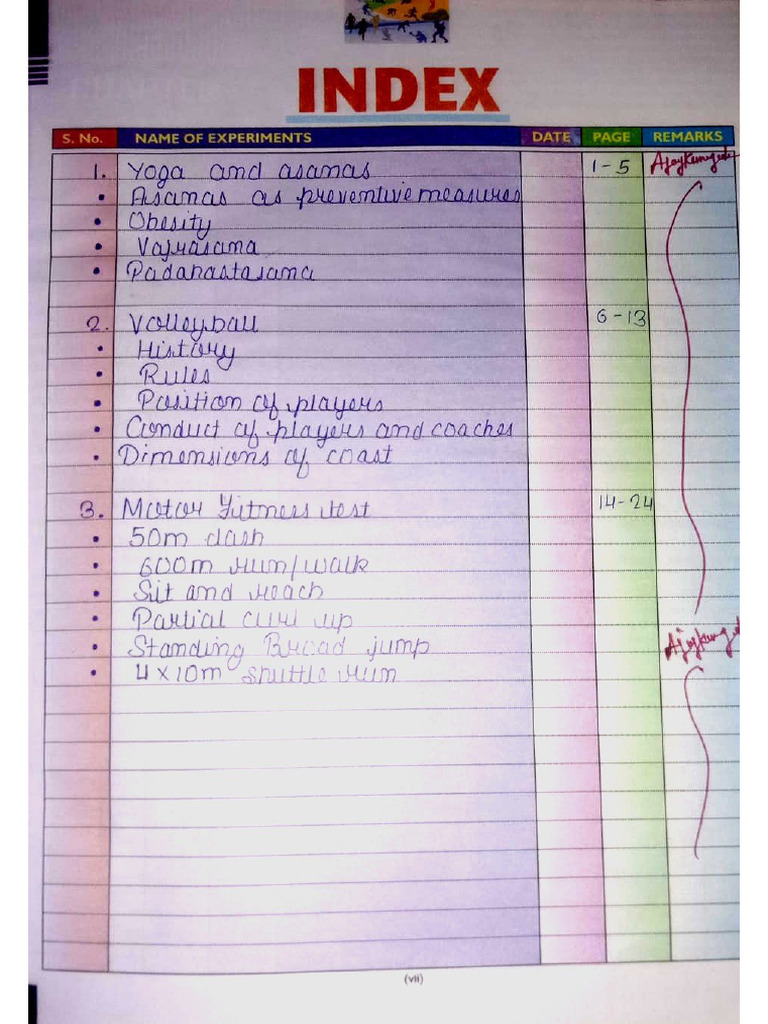 INDEX
S. No. NAME OF EXPERIMENTS DATE PAGE REMARKS
1. Yoga and asanas 1-5
• Asanas as preventive measures
• Obesity
• Vajrasana
• Padahastasana
2. Volleyball 6-13
• History
• Rules
• Position of players
• Conduct of players and coaches
• Dimensions of coast
3. Motor Fitness test 14-24
• 50m dash
• 600m run/walk
• Sit and reach
• Partial curl up
• Standing Broad jump
• 4x10m shuttle run
(vii)